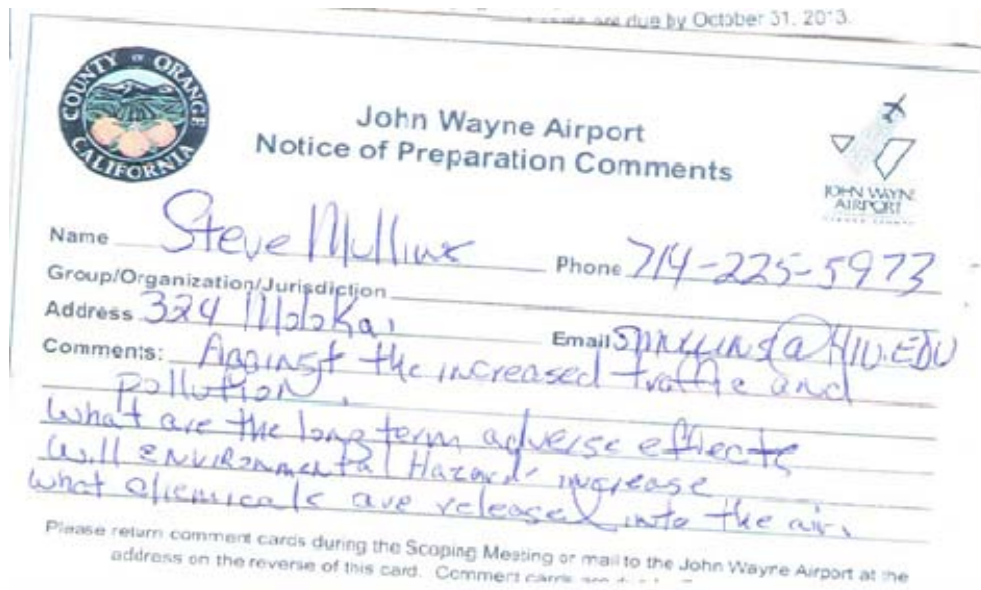 are due by October 31, 2013.
COUNTY OF ORANGE
CALIFORNIA
John Wayne Airport
Notice of Preparation Comments
JOHN WAYNE
AIRPORT
Name Steve Mullins Phone 714-225-5973
Group/Organization/Jurisdiction
Address 324 Molokai Email @HIU.EDU
Comments: Against the increased traffic and
Pollution.
What are the long term adverse effects
Will ENVIRonmental Hazards increase
What chemicals are released into the air.
Please return comment cards during the Scoping Meeting or mail to the John Wayne Airport at the
address on the reverse of this card. Comment cards are due by